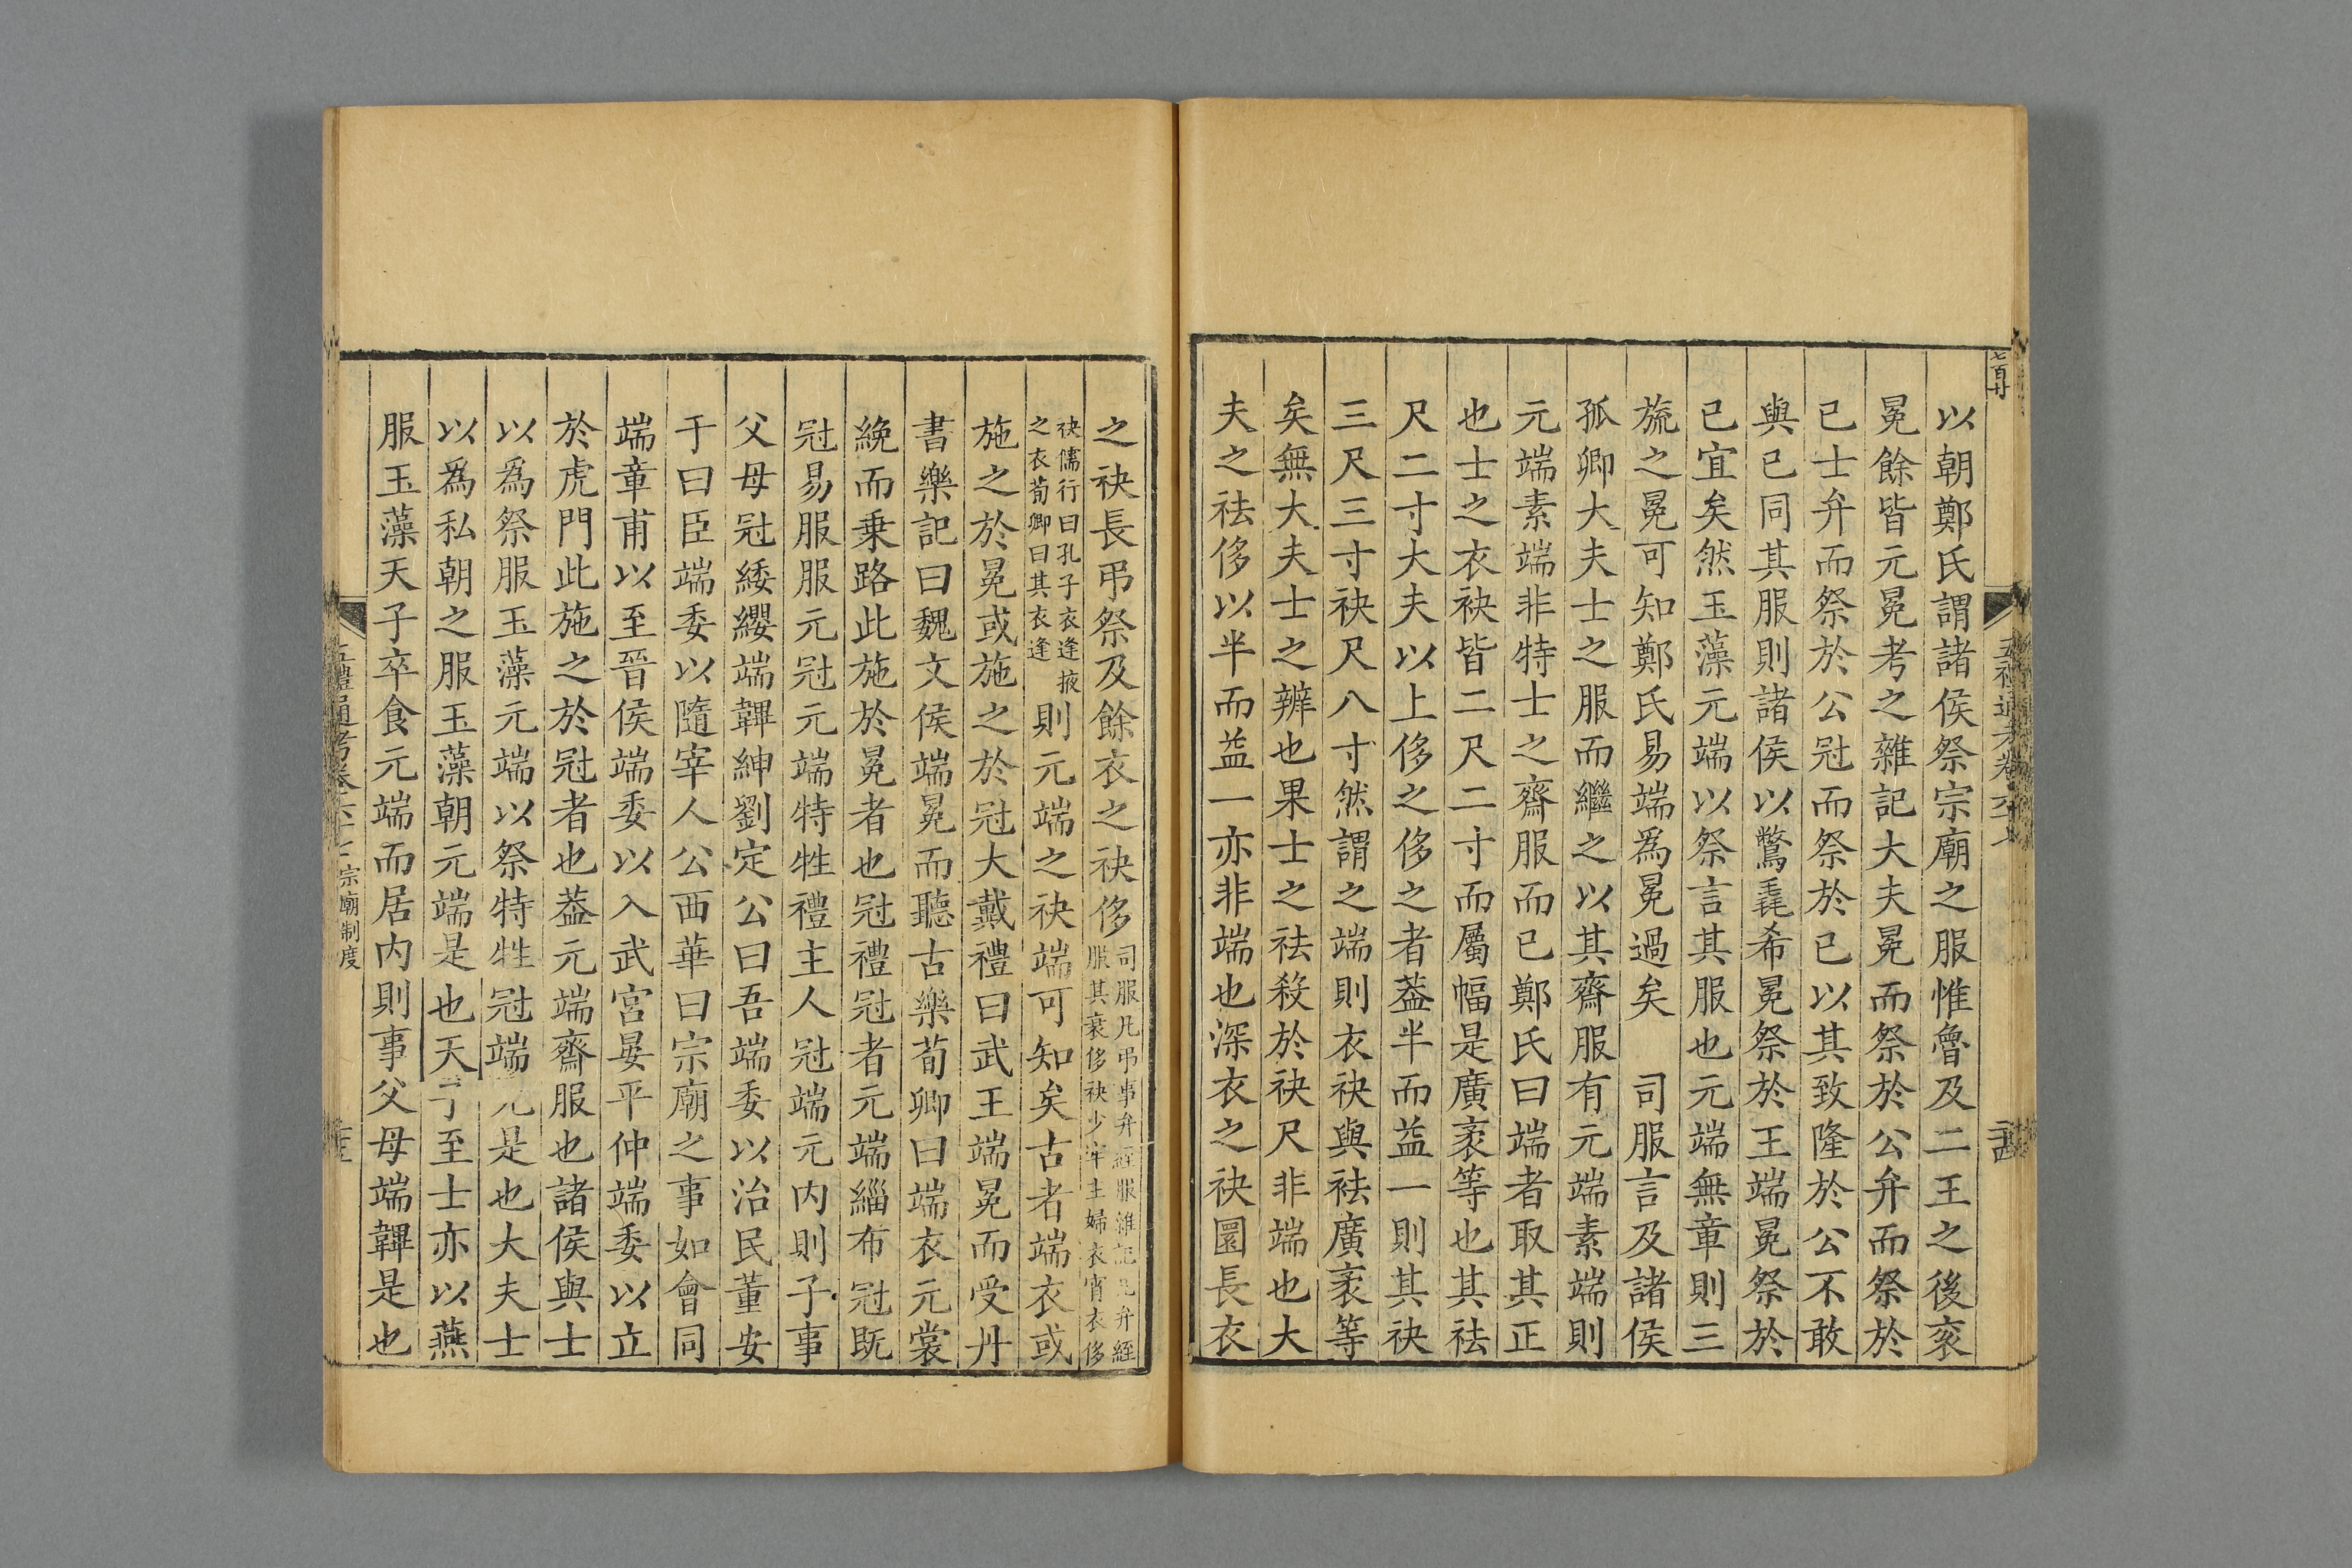 七百廿
以朝鄭氏謂諸侯祭宗廟之服惟魯及二王之後衮
冕餘皆元冕考之雜記大夫冕而祭於公弁而祭於
已士弁而祭於公冠而祭於已以其致隆於公不敢
與已同其服則諸侯以鷩毳希冕祭於王端冕祭於
已宜矣然玉藻元端以祭言其服也元端無章則三
旒之冕可知鄭氏易端爲冕過矣 司服言及諸侯
孤卿大夫士之服而繼之以其齋服有元端素端則
元端素端非特士之齋服而已鄭氏曰端者取其正
也士之衣袂皆二尺二寸而屬幅是廣袤等也其袪
尺二寸大夫以上侈之侈之者葢半而益一則其袂
三尺三寸袂尺八寸然謂之端則衣袂與袪廣袤等
矣無大夫士之辨也果士之袪殺於袂尺非端也大
夫之袪侈以半而益一亦非端也深衣之袂圜長衣
之袂長弔祭及餘衣之袂侈
司服凡弔事弁絰服雜記凡弁絰
服其衰侈袂少牢主婦衣宵衣侈
袂儒行曰孔子衣逢掖
之衣荀卿曰其衣逢
則元端之袂端可知矣古者端衣或
施之於冕或施之於冠大戴禮曰武王端冕而受丹
書樂記曰魏文侯端冕而聽古樂荀卿曰端衣元裳
絻而乗路此施於冕者也冠禮冠者元端緇布冠旣
冠易服服元冠元端特牲禮主人冠端元内則子事
父母冠緌纓端韠紳劉定公曰吾端委以治民董安
于曰臣端委以隨宰人公西華曰宗廟之事如會同
端章甫以至晉侯端委以入武宫晏平仲端委以立
於虎門此施之於冠者也葢元端齋服也諸侯與士
以爲祭服玉藻元端以祭特牲冠端元是也大夫士
以爲私朝之服玉藻朝元端是也天子至士亦以燕
服玉藻天子卒食元端而居内則事父母端韠是也
五禮通考卷六十 宗廟制度